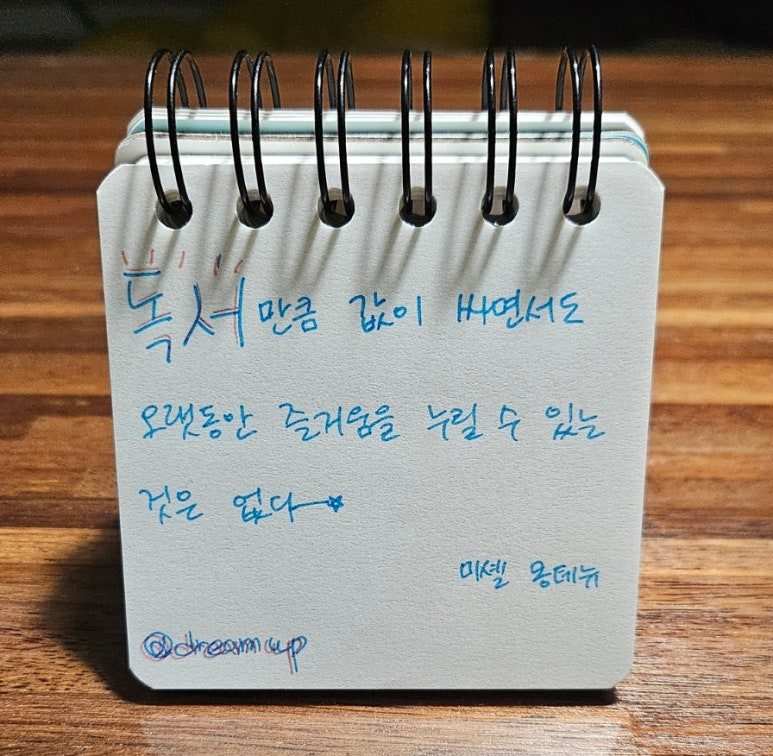 독서만큼 값이 싸면서도
오랫동안 즐거움을 누릴 수 있는
것은 없다
미셸 몽테뉴
@dreamcup